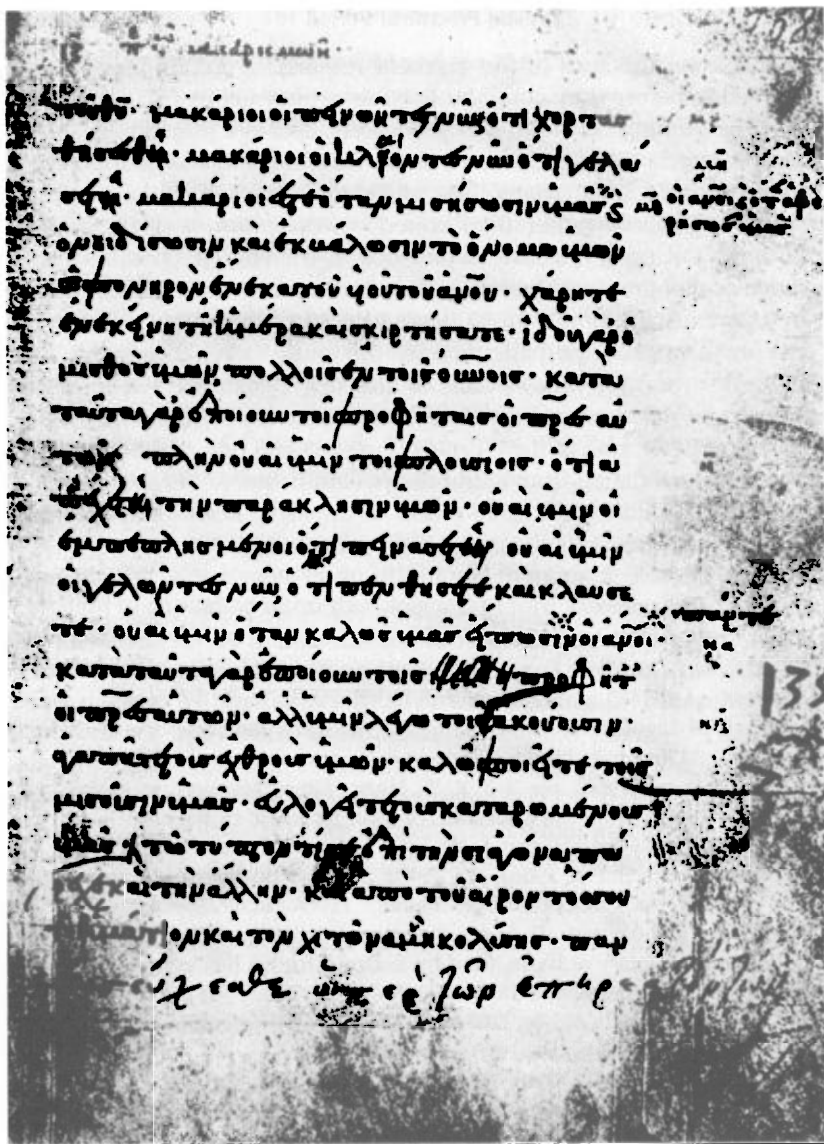 μακαρισμῶν
τοῦ θῦ· μακάριοι οἱ πεινῶντες νῦν ὅτι χορτασ
θήσεσθε· μακάριοι οἱ κλαίοντες νῦν ὅτι γελά
σετε· μακάριοί ἐστε ὅταν μισήσωσιν ὑμᾶς οἱ ἄνοι καὶ ὅταν ἀφορίσωσιν ὑμᾶς
ὀνειδίσωσιν καὶ ἐκβάλωσιν τὸ ὄνομα ὑμῶν
ὡς πονηρὸν ἕνεκα τοῦ υἱοῦ τοῦ ἀνοῦ· χάρητε
ἐν ἐκείνη τῆ ἡμέρα καὶ σκιρτήσατε· ἰδοὺ γὰρ ὁ
μισθὸς ὑμῶν πολὺς ἐν τοῖς οὐνοῖς· κατὰ
ταῦτα γὰρ ἐποίουν τοῖς προφήταις οἱ πρες αὐ
τῶν πλὴν οὐαὶ ὑμῖν τοῖς πλουσίοις· ὅτι ἀ
πέχετε τὴν παράκλησιν ὑμῶν· οὐαὶ ὑμῖν οἱ
ἐμπεπλησμένοι ὅτι πεινάσετε οὐαὶ ὑμῖν
οἱ γελῶντες νῦν ὅτι πενθήσετε καὶ κλαύσε
τε· οὐαὶ ὑμῖν ὅταν καλῶς ὑμᾶς εἴπωσιν οἱ ἄνοι·
κατὰ ταῦτα γὰρ ἐποίουν τοῖς προφητ
οἱ πρες αὐτῶν· ἀλλ ὑμῖν λέγω τοῖς ἀκούουσιν·
ἀγαπᾶτε τοὺς ἐχθροὺς ὑμῶν· καλῶς ποιεῖτε τοῖς
μισοῦσιν ὑμᾶς· εὐλογεῖτε τοὺς καταρωμένους
ὑμῖν· τῶ τύπτοντί σε ἐπὶ τὴν σιαγόνα πά
ρεχε καὶ τὴν ἄλλην· καὶ ἀπὸ τοῦ αἴροντός σου
τὸ ἱμάτιον καὶ τὸν χιτῶνα μὴ κωλύσης· παν
εύχεσθε ὑπερ τῶν ἐπηρ